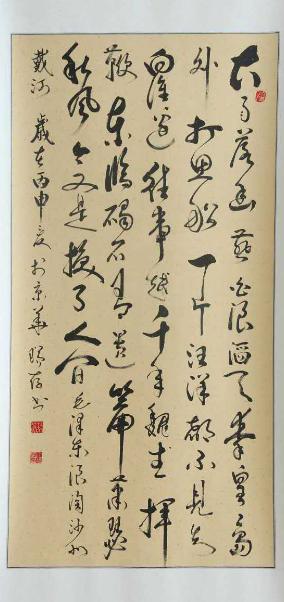 大雨落幽燕白浪滔天秦皇岛
外打鱼船一片汪洋都不见知
向谁边往事越千年魏武挥
鞭东临碣石有遗篇萧瑟
秋风今又是换了人间毛泽东浪淘沙北
戴河 歲在丙申夏於京華 书